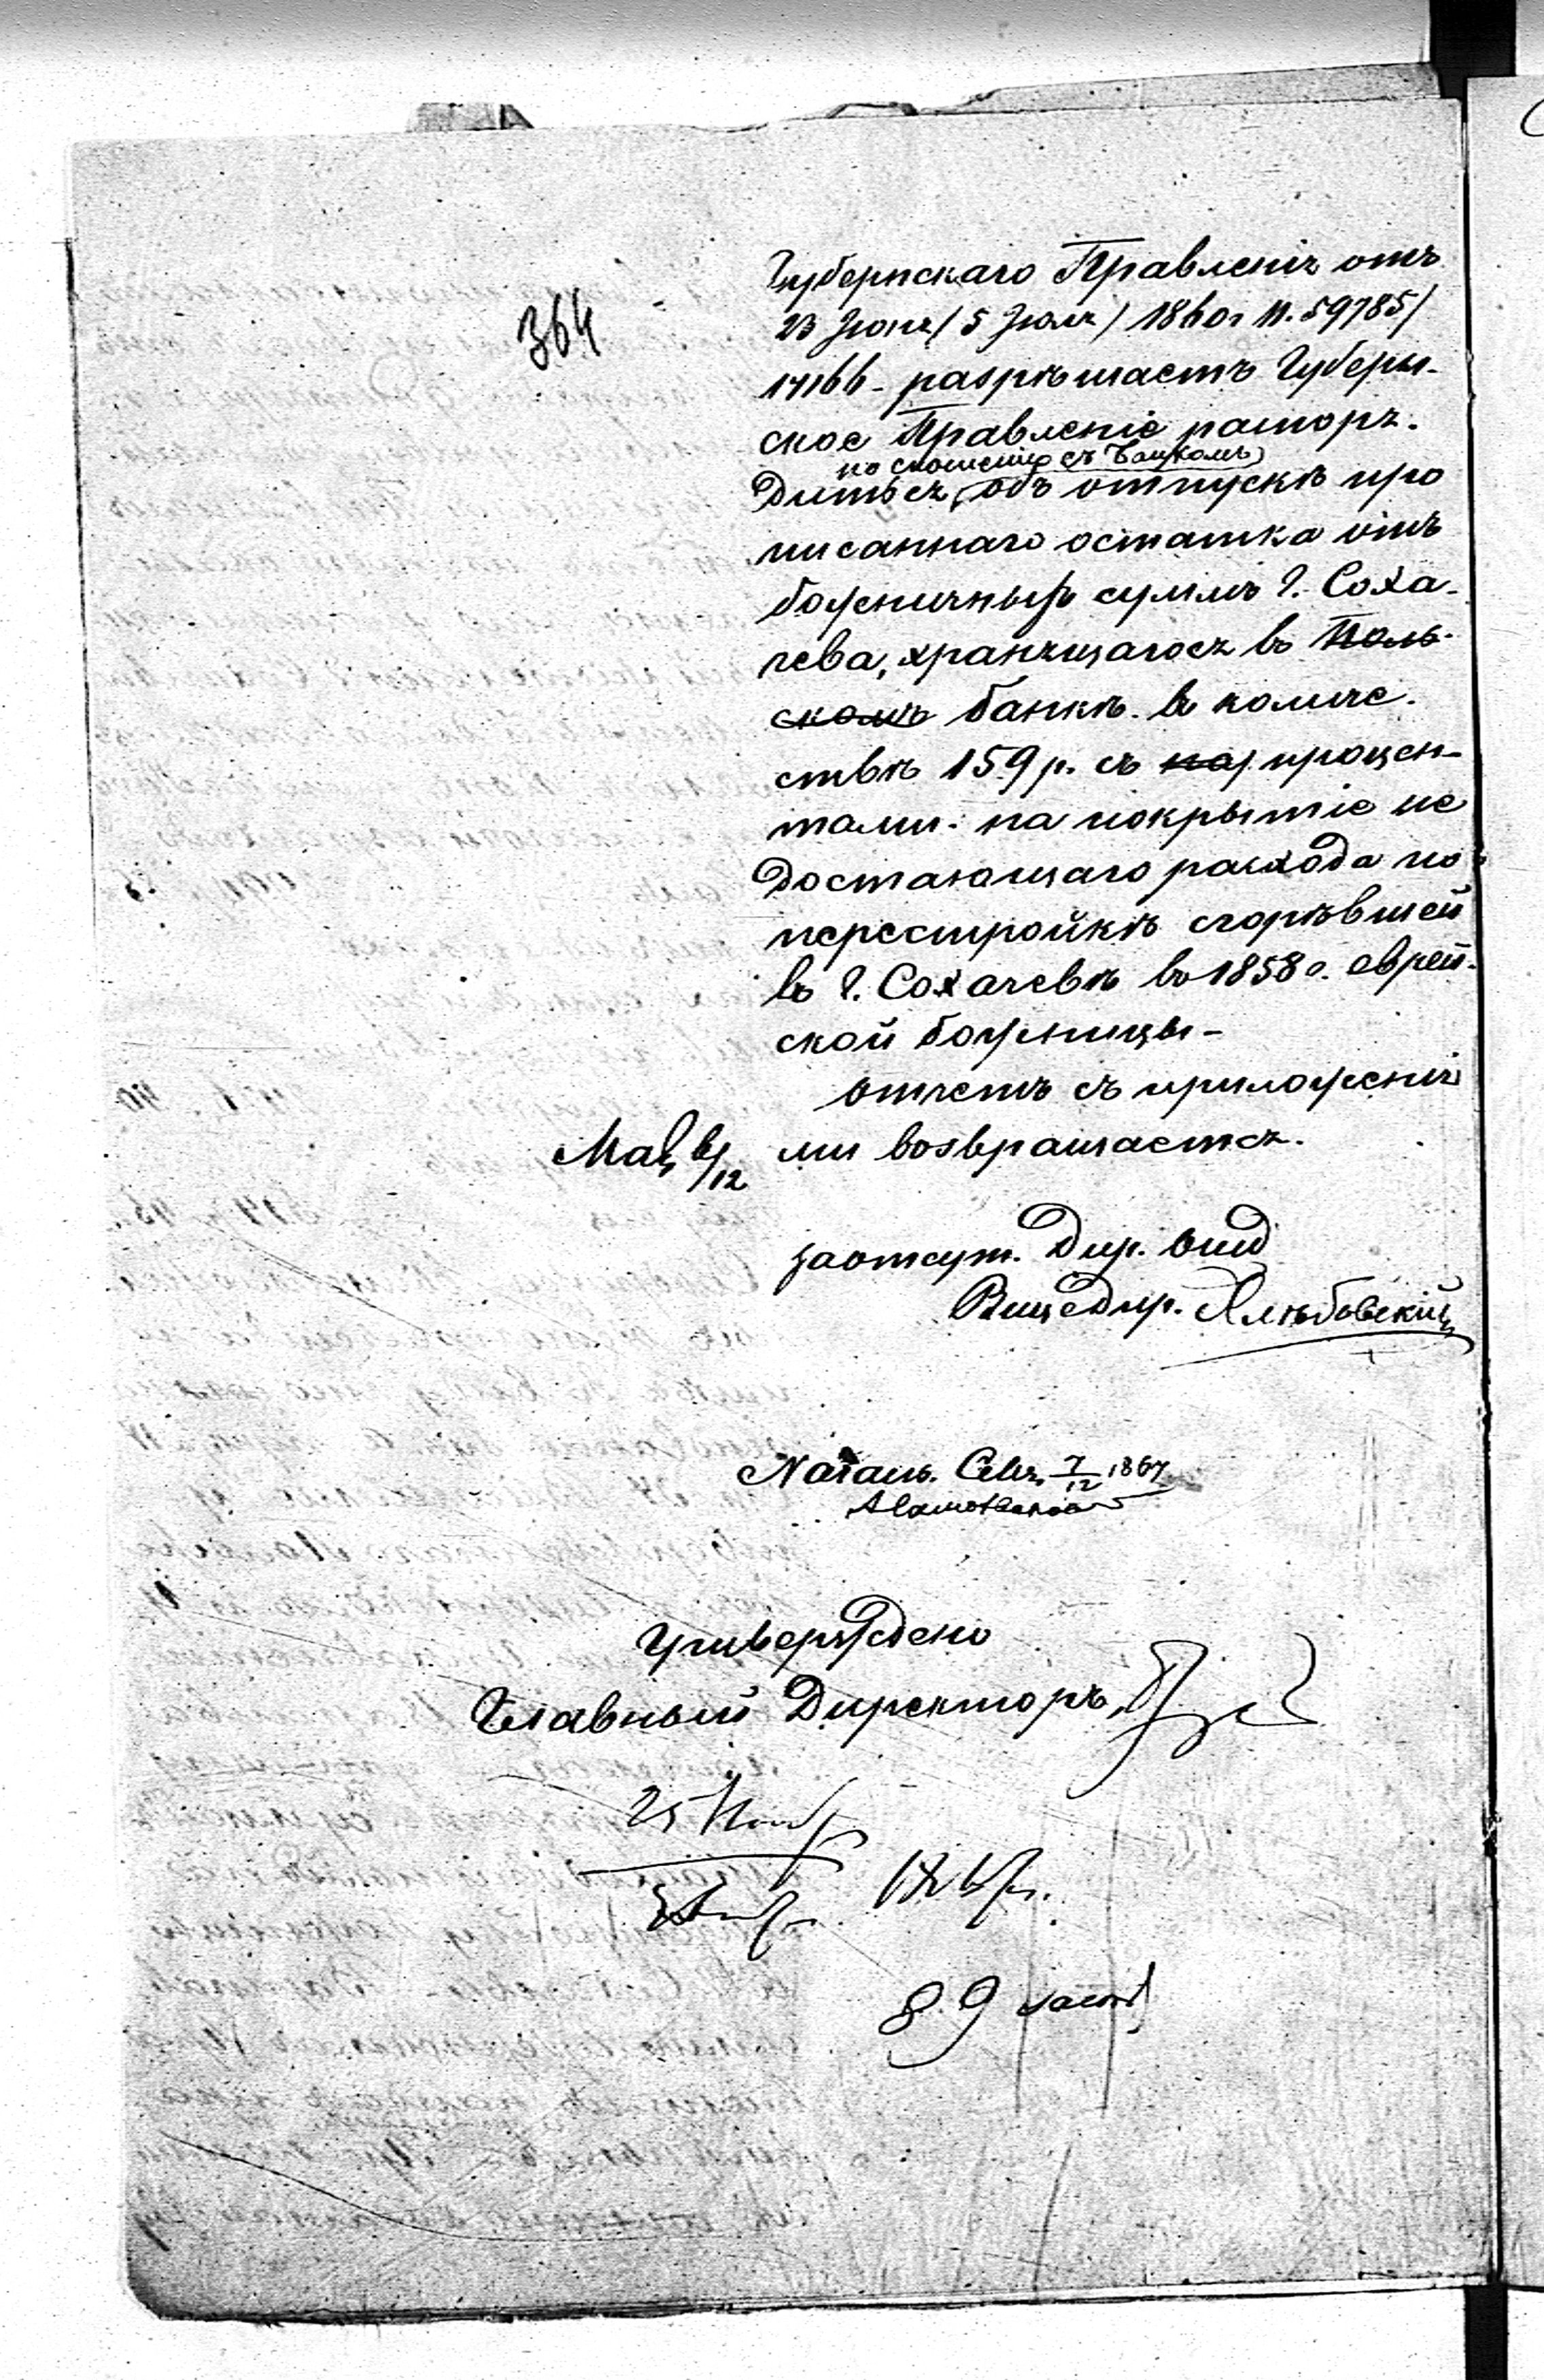 364
Губернскаго Правленія отъ
23 Іюня / 5 Іюля / 1860 г N. 59785/
17166 - разрѣшаетъ Губерн-
ское Правленіе распоря-
по сношенію съ Банкомъ
диться, объ отпускѣ про
писаннаго остатка отъ
божничныхъ суммъ г. Соха-
чева, хранящагося въ Поль-
скомъ банкѣ въ количе-
ствѣ 159 р. съ процен-
тами на покрытіе не
достающаго расхода по
перестройкѣ сгорѣвшей
въ г. Сохачевѣ въ 1858 г. еврей-
ской божницы -
Отчетъ съ приложенія
ми возвращается.
6/12
За отсут. Дир. Отд
Вице Дир. Хлѣбовскій
7/12 1867
Утверждено
Главный Директоръ
25 Нояб
186 г.
8. 9 часов